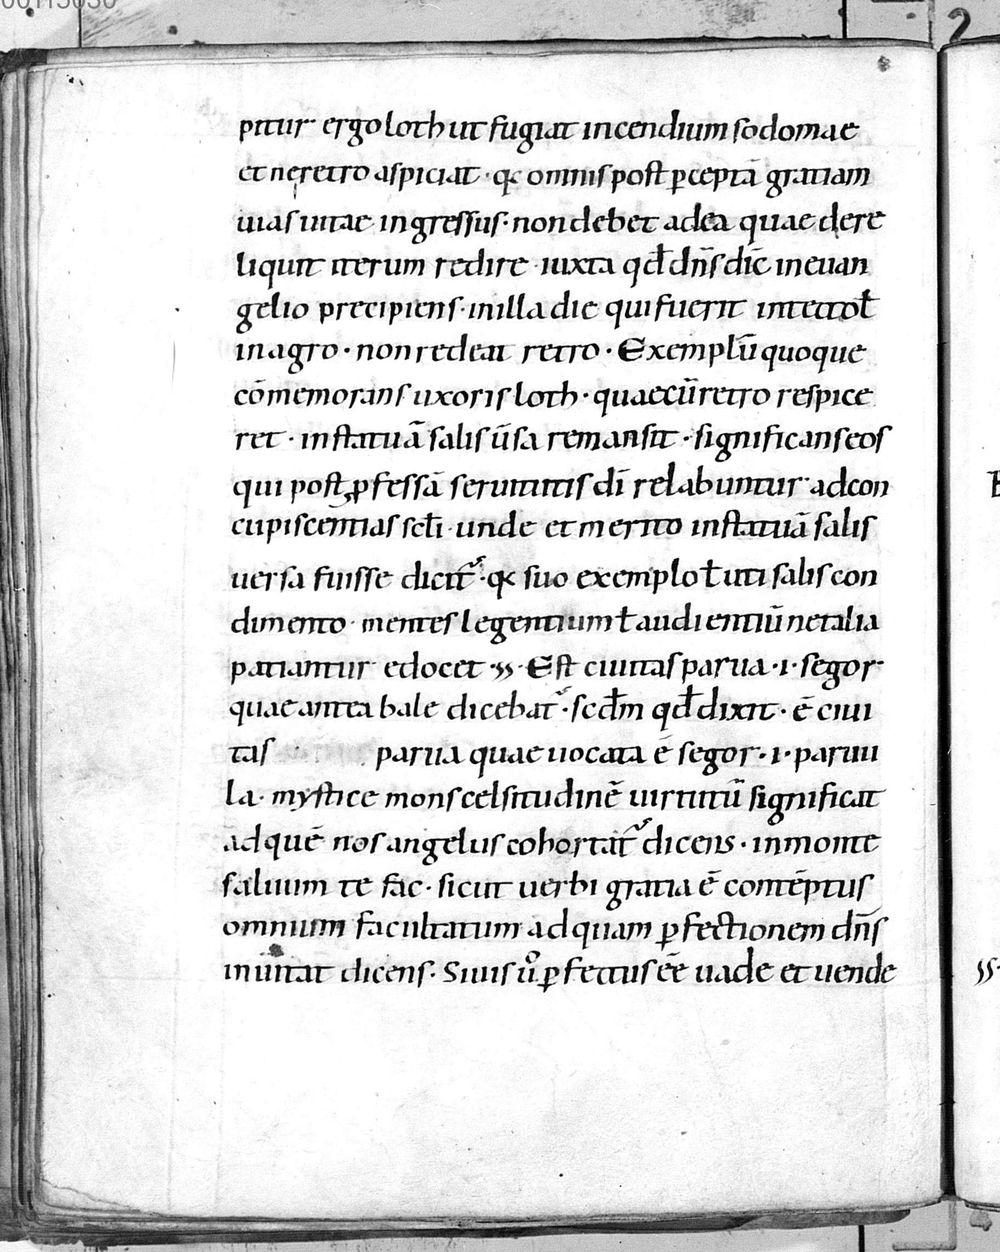 pitur ergo loth ut fugiat incendium sodomae
et ne retro aspiciat · qꝛ omnis post ꝑceptā gratiam
uias uitae ingressus · non debet ad ea quae dere
liquit iterum redire · iuxta qđ dn̄s dic̄ in euan
gelio precipiens · in illa die qui fuerit in tecto ł
in agro · non redeat retro · Exemplū quoque
cōmemorans uxoris loth · quae cū retro respice
ret · in statuā salis ūsa remansit · significans eos
qui post ꝓfessā seruitutis dī relabuntur ad con
cupiscentias sclī · unde et merito in statuā salis
uersa fuisse dicit᷑ · qꝛ suo exemplo ł uti salis con
dimento · mentes legentium ł audientiū ne talia
patiantur edocet · Est ciuitas parua · i · segor ·
quae antea bale dicebat᷑ · scđm qđ dixit · ē ciui
tas parua quae uocata ē segor · i · paruu
la · mystice mons celsitudinē uirtutū significat
ad quē nos angelus cohortat᷑ dicens · in monte
saluum te fac · sicut uerbi gratia ē contēptus
omnium facultatum ad quam ꝑfectionem dn̄s
inuitat dicens · Si uis ūo ꝑfectus eē uade et uende